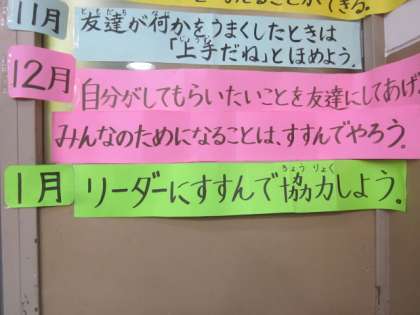 えることができる。
11月
友達が何かをうまくしたときは
「上手だね」とほめよう。
12月
自分がしてもらいたいことを友達にしてあげ
みんなのためになることは、すすんでやろう。
1月
リーダーにすすんで協力しよう。